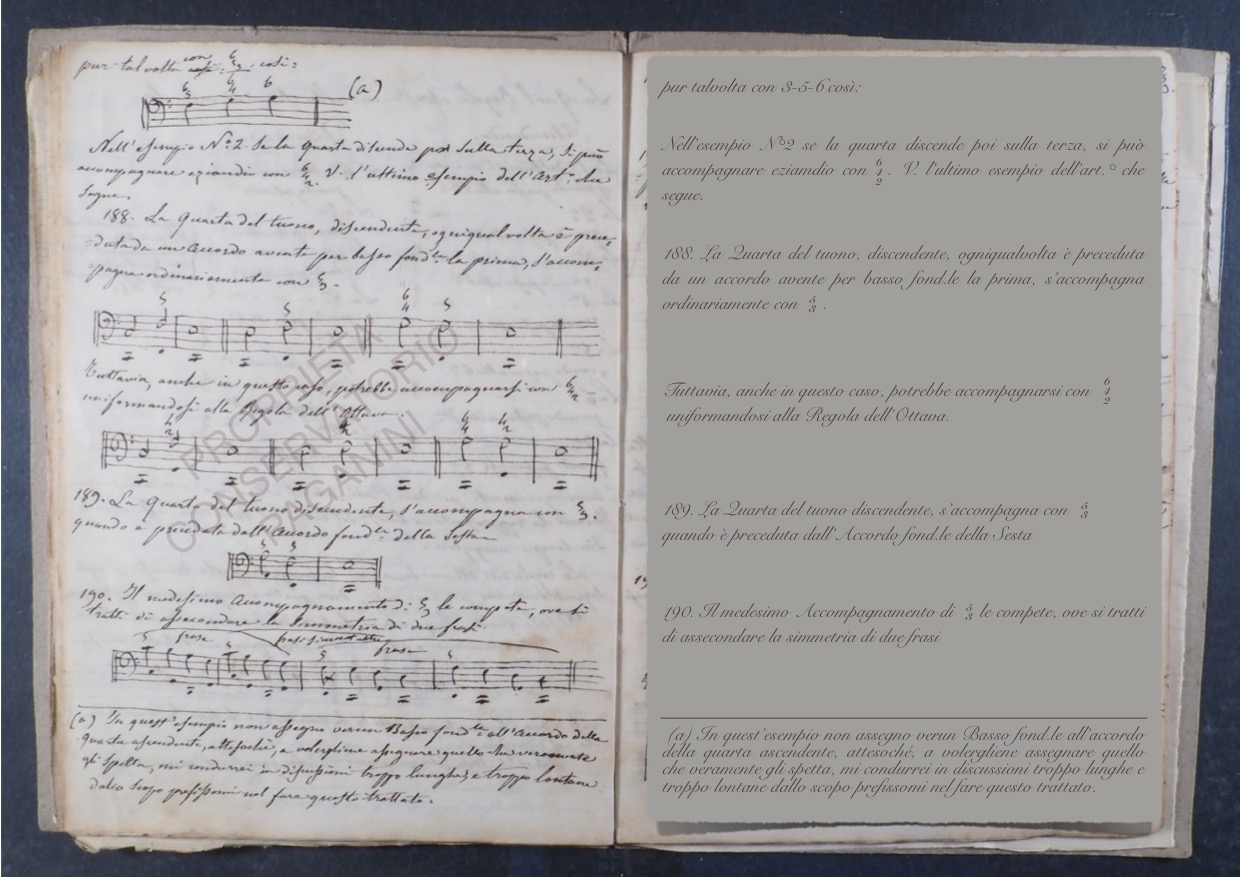 pur talvolta con 6 5 3 così:
6
4
6
(a)
Nell'esempio N.° 2. Se la quarta discende poi sulla terza, si può
accompagnare eziandio con 6 4 2. V. l'ultimo esempio dell'Art.° che
segue.
188. La Quarta del tuono, discendente, ogniqualvolta è prece=
=duta da un accordo avente per basso fond.le la prima, s'accom=
=pagna ordinariamente con 5 3.
5 5 6 4 5
Tuttavia, anche in questo caso, potrebbe accompagnarsi con 6 4 2
uniformandosi alla Regola dell'Ottava.
189. La Quarta del tuono discendente, s'accompagna con 5 3.
quando è preceduta dall'Accordo fond.le della Sesta
5 5
190. Il medesimo Accompagnamento di 5 3 le compete, ove si
tratti di assecondare la Simmetria di due frasi
5 frase 5
frase
5 5
(a) In quest'esempio non assegno verun Basso fond.le all'accordo della
quarta ascendente, attesochè, a volergliene assegnare quello che veramente
gli spetta, mi condurrei in discussioni troppo lunghe, e troppo lontane
dallo scopo prefissomi nel fare questo trattato.
PROPRIETÀ
CONSERVATORIO
PAGANINI
pur talvolta con 3-5-6 così:
Nell'esempio N°2 se la quarta discende poi sulla terza, si può
accompagnare eziamdio con 6 4 2 . V. l'ultimo esempio dell'art.° che
segue.
188. La Quarta del tuono, discendente, ogniqualvolta è preceduta
da un accordo avente per basso fond.le la prima, s'accompagna
ordinariamente con 5 3 .
Tuttavia, anche in questo caso, potrebbe accompagnarsi con 6 4 2
uniformandosi alla Regola dell'Ottava.
189. La Quarta del tuono discendente, s'accompagna con 5 3
quando è preceduta dall'Accordo fond.le della Sesta
190. Il medesimo Accompagnamento di 5 3 le compete, ove si tratti
di assecondare la simmetria di due frasi
(a) In quest'esempio non assegno verun Basso fond.le all'accordo
della quarta ascendente, attesoché, a volergliene assegnare quello
che veramente gli spetta, mi condurrei in discussioni troppo lunghe e
troppo lontane dallo scopo prefissomi nel fare questo trattato.